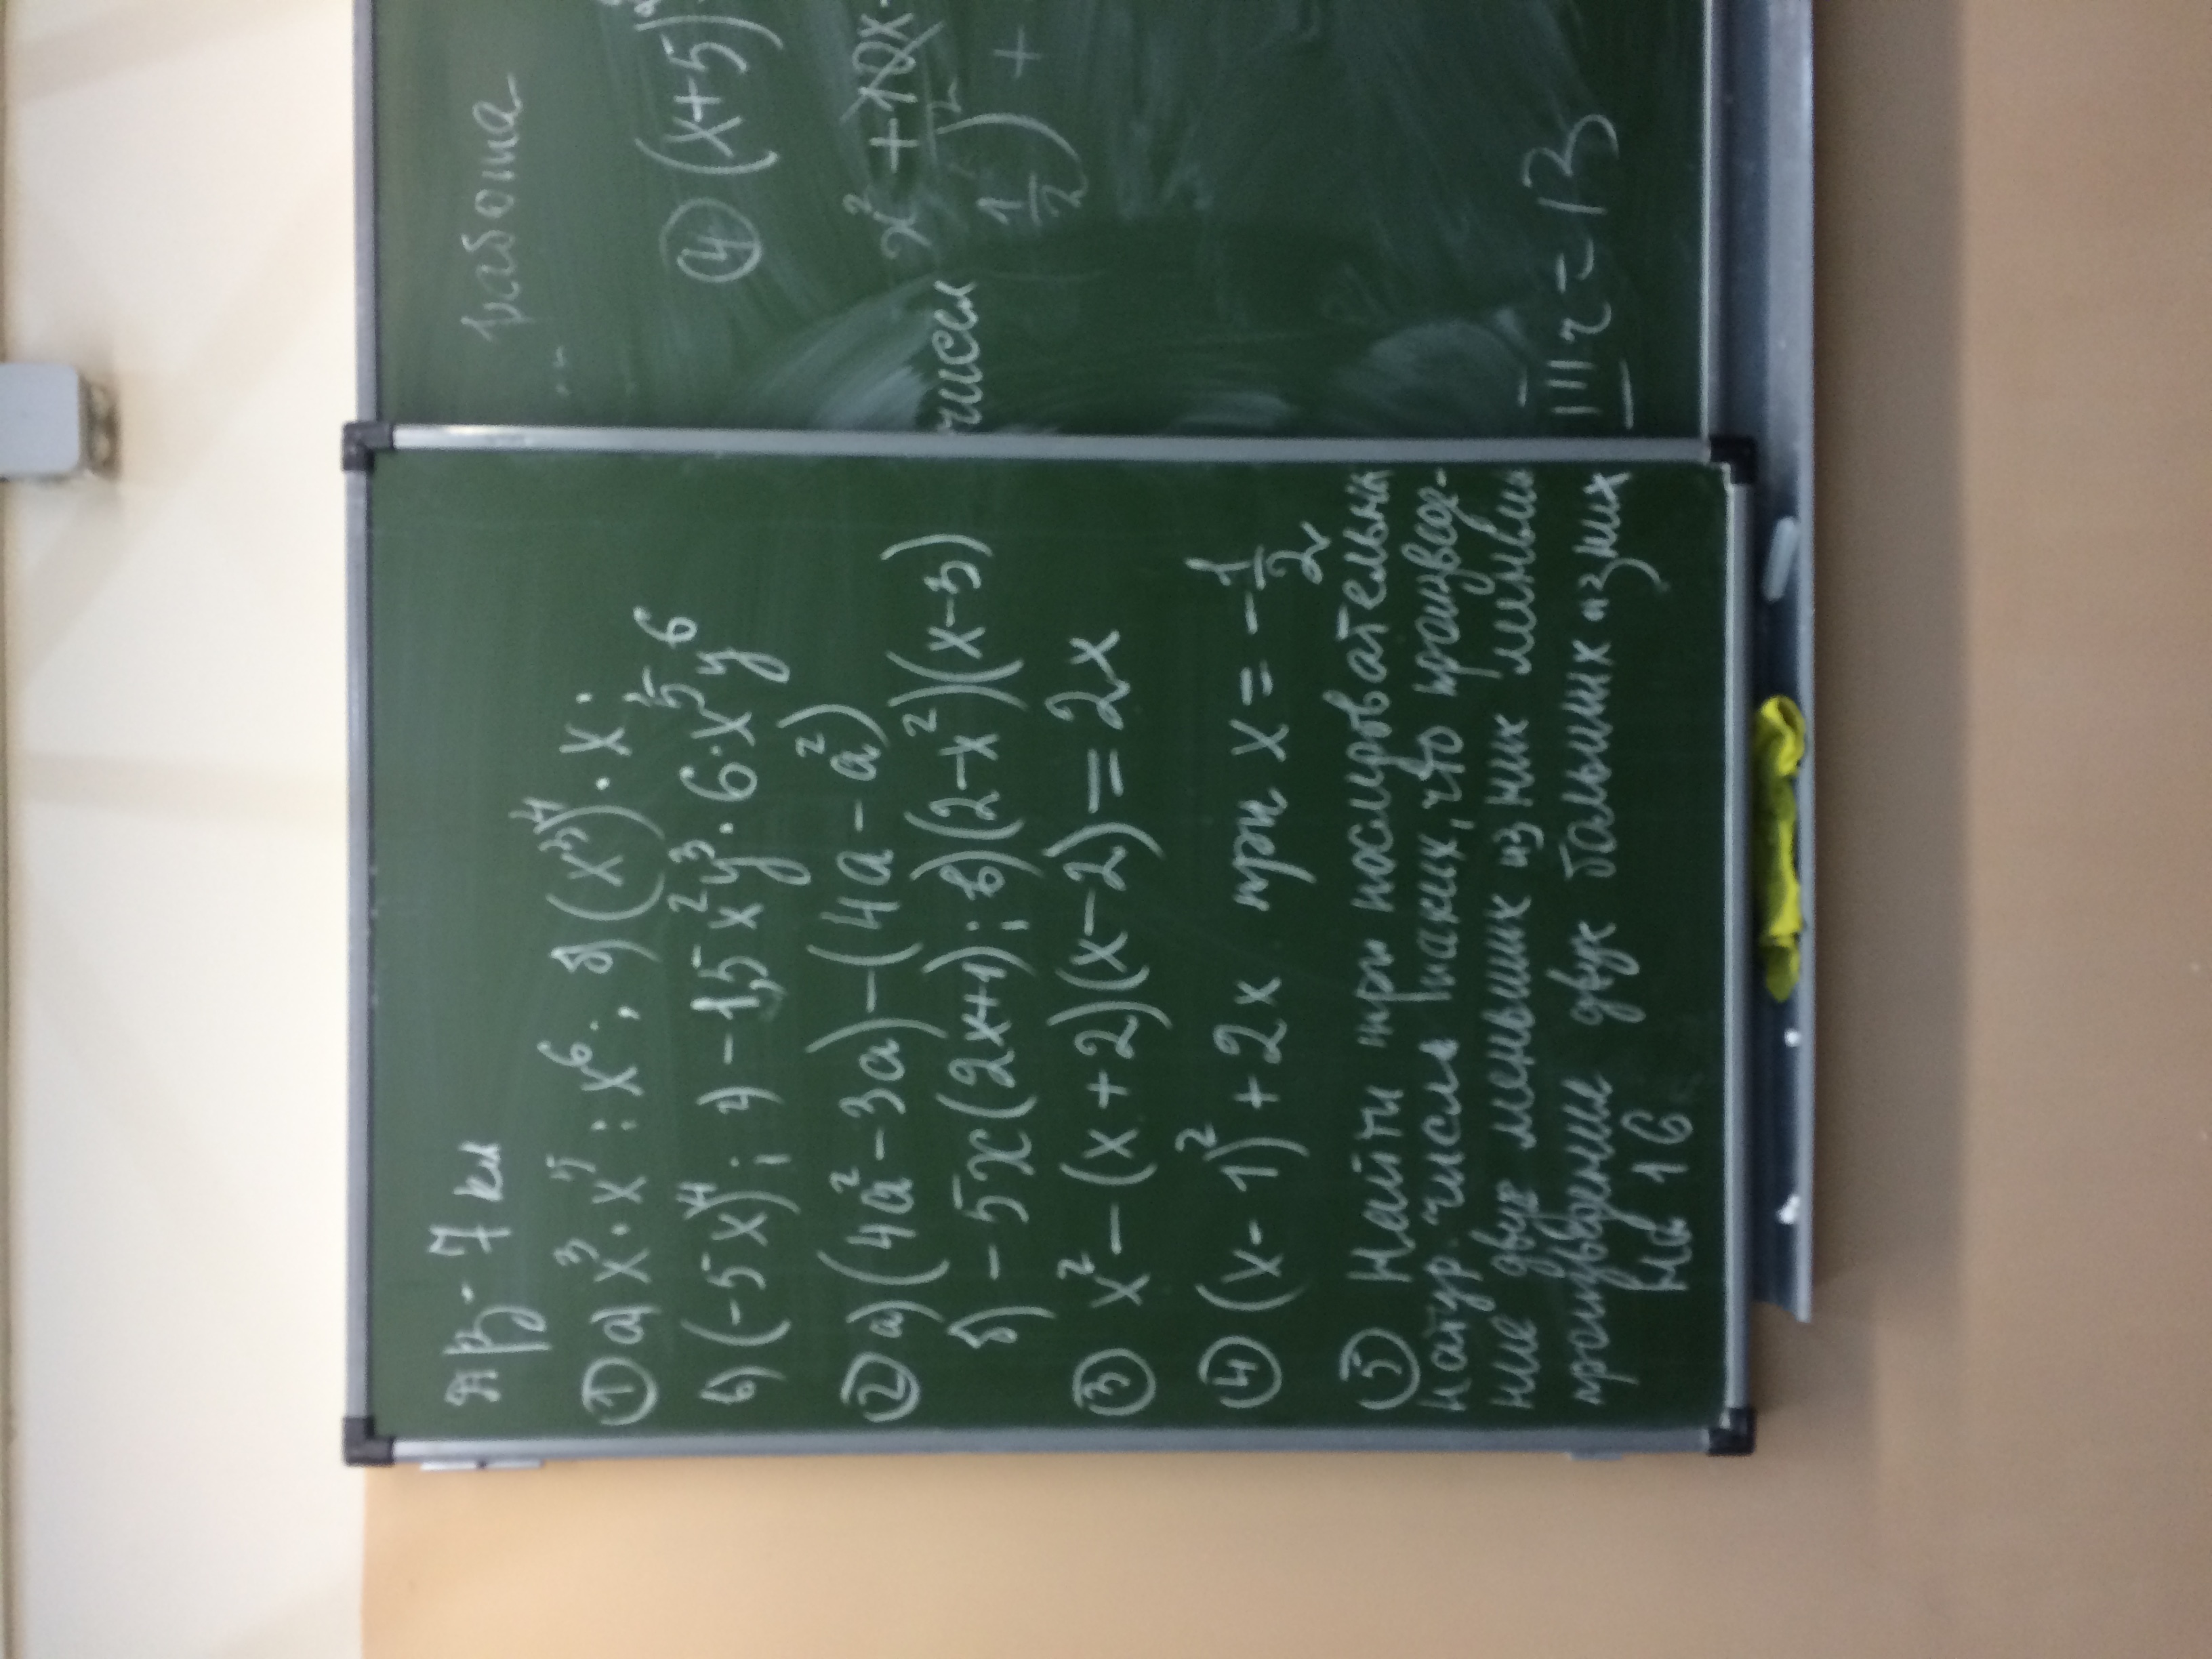 ДР - 7 кл
① а) x³·x⁵ : x⁶; б) (x³)⁴ · x;
в) (-5x⁴); г) -1,5x²y³ · 6·x⁵y⁶
② а) (4a²-3a) - (4a-a²)
б) -5x(2x+1); в) (2-x²)(x-3)
③ x² - (x+2)(x-2) = 2x
④ (x-1)² + 2x при x = -1/2
⑤ Найти три последовательных
натур. числа таких, что произвед-
ние двух меньших из них меньше
произведения двух больших из них
на 16
работа
④ (x+5)²
x² + 10x
чисел
1/2) +
III ч - В